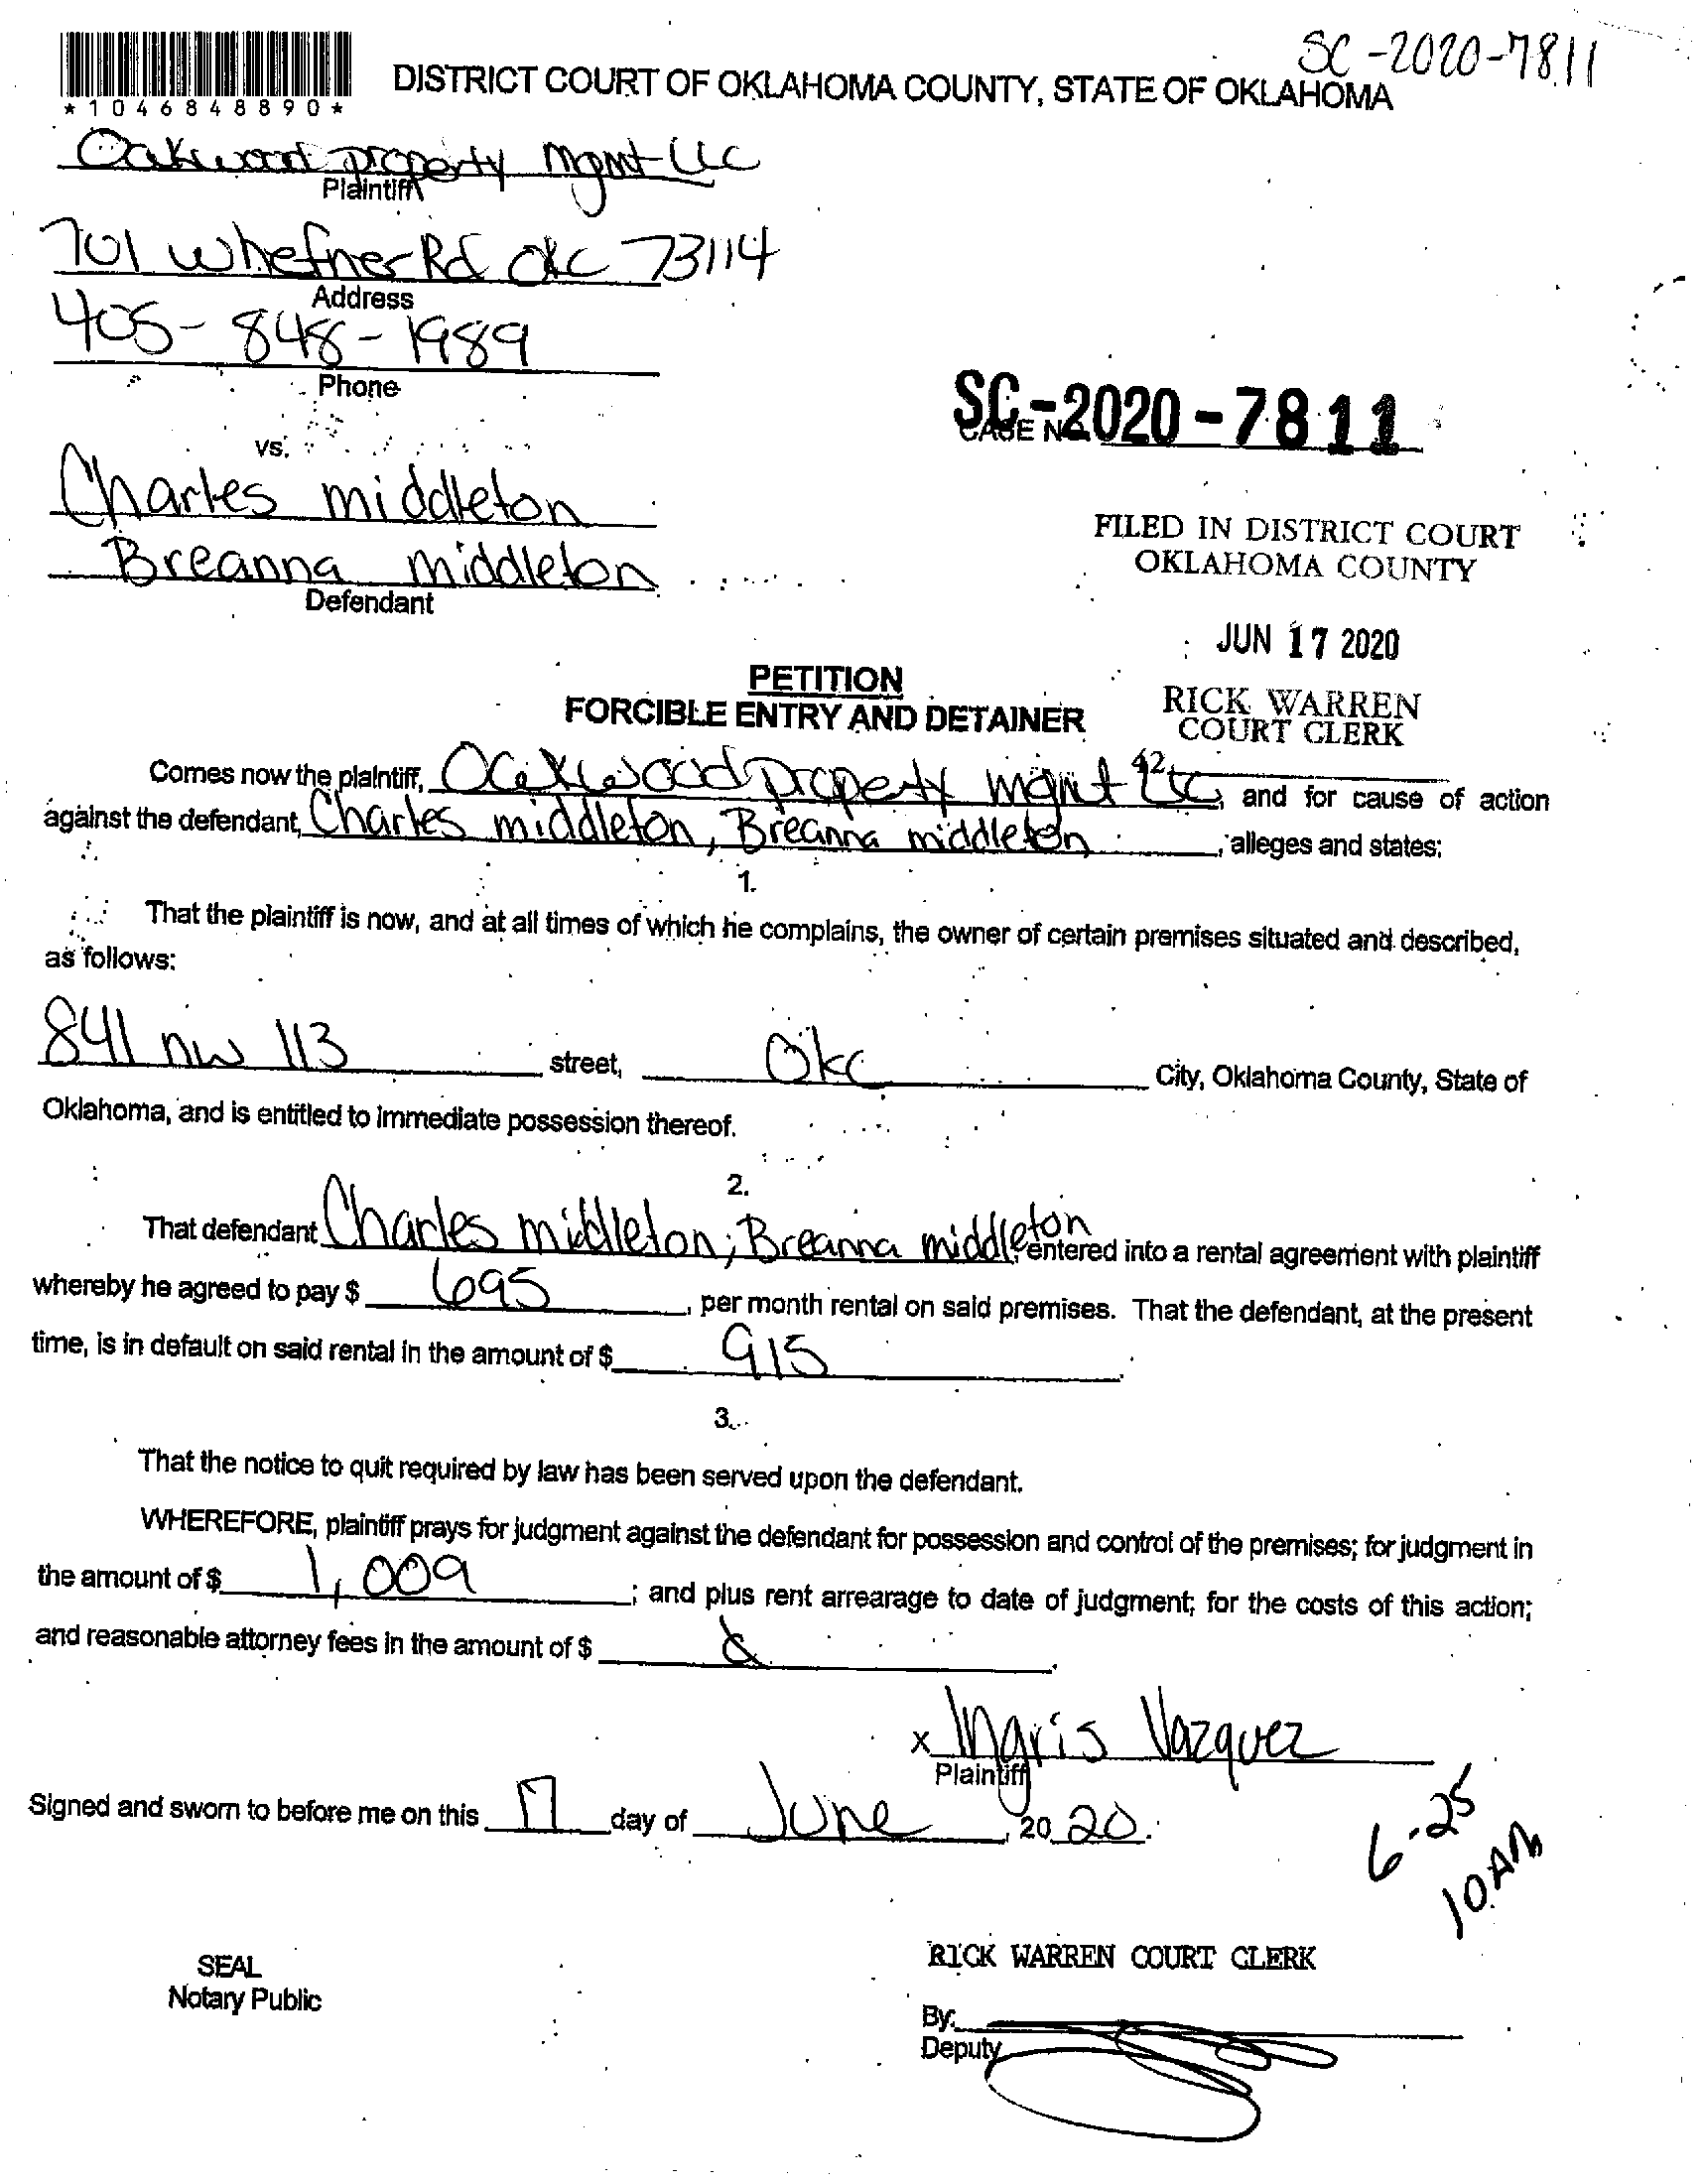 SC-2020-7811
*1046848890*
DISTRICT COURT OF OKLAHOMA COUNTY, STATE OF OKLAHOMA
Oakwood property mgmt LLC
Plaintiff
701 W hefner Rd OKC 73114
Address
405-848-1989
Phone
SC-2020-7811
CASE NO.
vs.
Charles middleton
Breanna middleton
Defendant
FILED IN DISTRICT COURT
OKLAHOMA COUNTY
JUN 17 2020
RICK WARREN
COURT CLERK
42
PETITION
FORCIBLE ENTRY AND DETAINER
Comes now the plaintiff, Oakwood property mgmt LLC, and for cause of action
against the defendant, Charles middleton, Breanna middleton, alleges and states:
1.
That the plaintiff is now, and at all times of which he complains, the owner of certain premises situated and described,
as follows:
841 nw 113 street, Okc City, Oklahoma County, State of
Oklahoma, and is entitled to immediate possession thereof.
2.
That defendant Charles middleton; Breanna middleton entered into a rental agreement with plaintiff
whereby he agreed to pay $ 695, per month rental on said premises. That the defendant, at the present
time, is in default on said rental in the amount of $ 915.
3.
That the notice to quit required by law has been served upon the defendant.
WHEREFORE, plaintiff prays for judgment against the defendant for possession and control of the premises; for judgment in
the amount of $ 1,009; and plus rent arrearage to date of judgment; for the costs of this action;
and reasonable attorney fees in the amount of $
x Ingris Vazquez
Plaintiff
Signed and sworn to before me on this 17 day of June, 20 20.
6-25
10AM
SEAL
Notary Public
RICK WARREN COURT CLERK
By:
Deputy